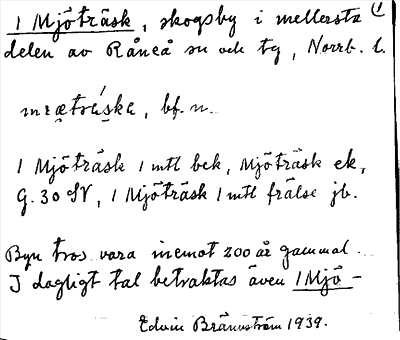 1 Mjöträsk, skogsby i mellersta 1)
delen av Råneå sn och tg, Norrb. l.
bf. n.
1 Mjöträsk 1 mtl bek, Mjöträsk ek,
G. 30 SV, 1 Mjöträsk 1 mtl frälse jb.
Byn tros vara inemot 200 år gammal...
I dagligt tal betraktas även 1 Mjö-
Edvin Brännström 1939.